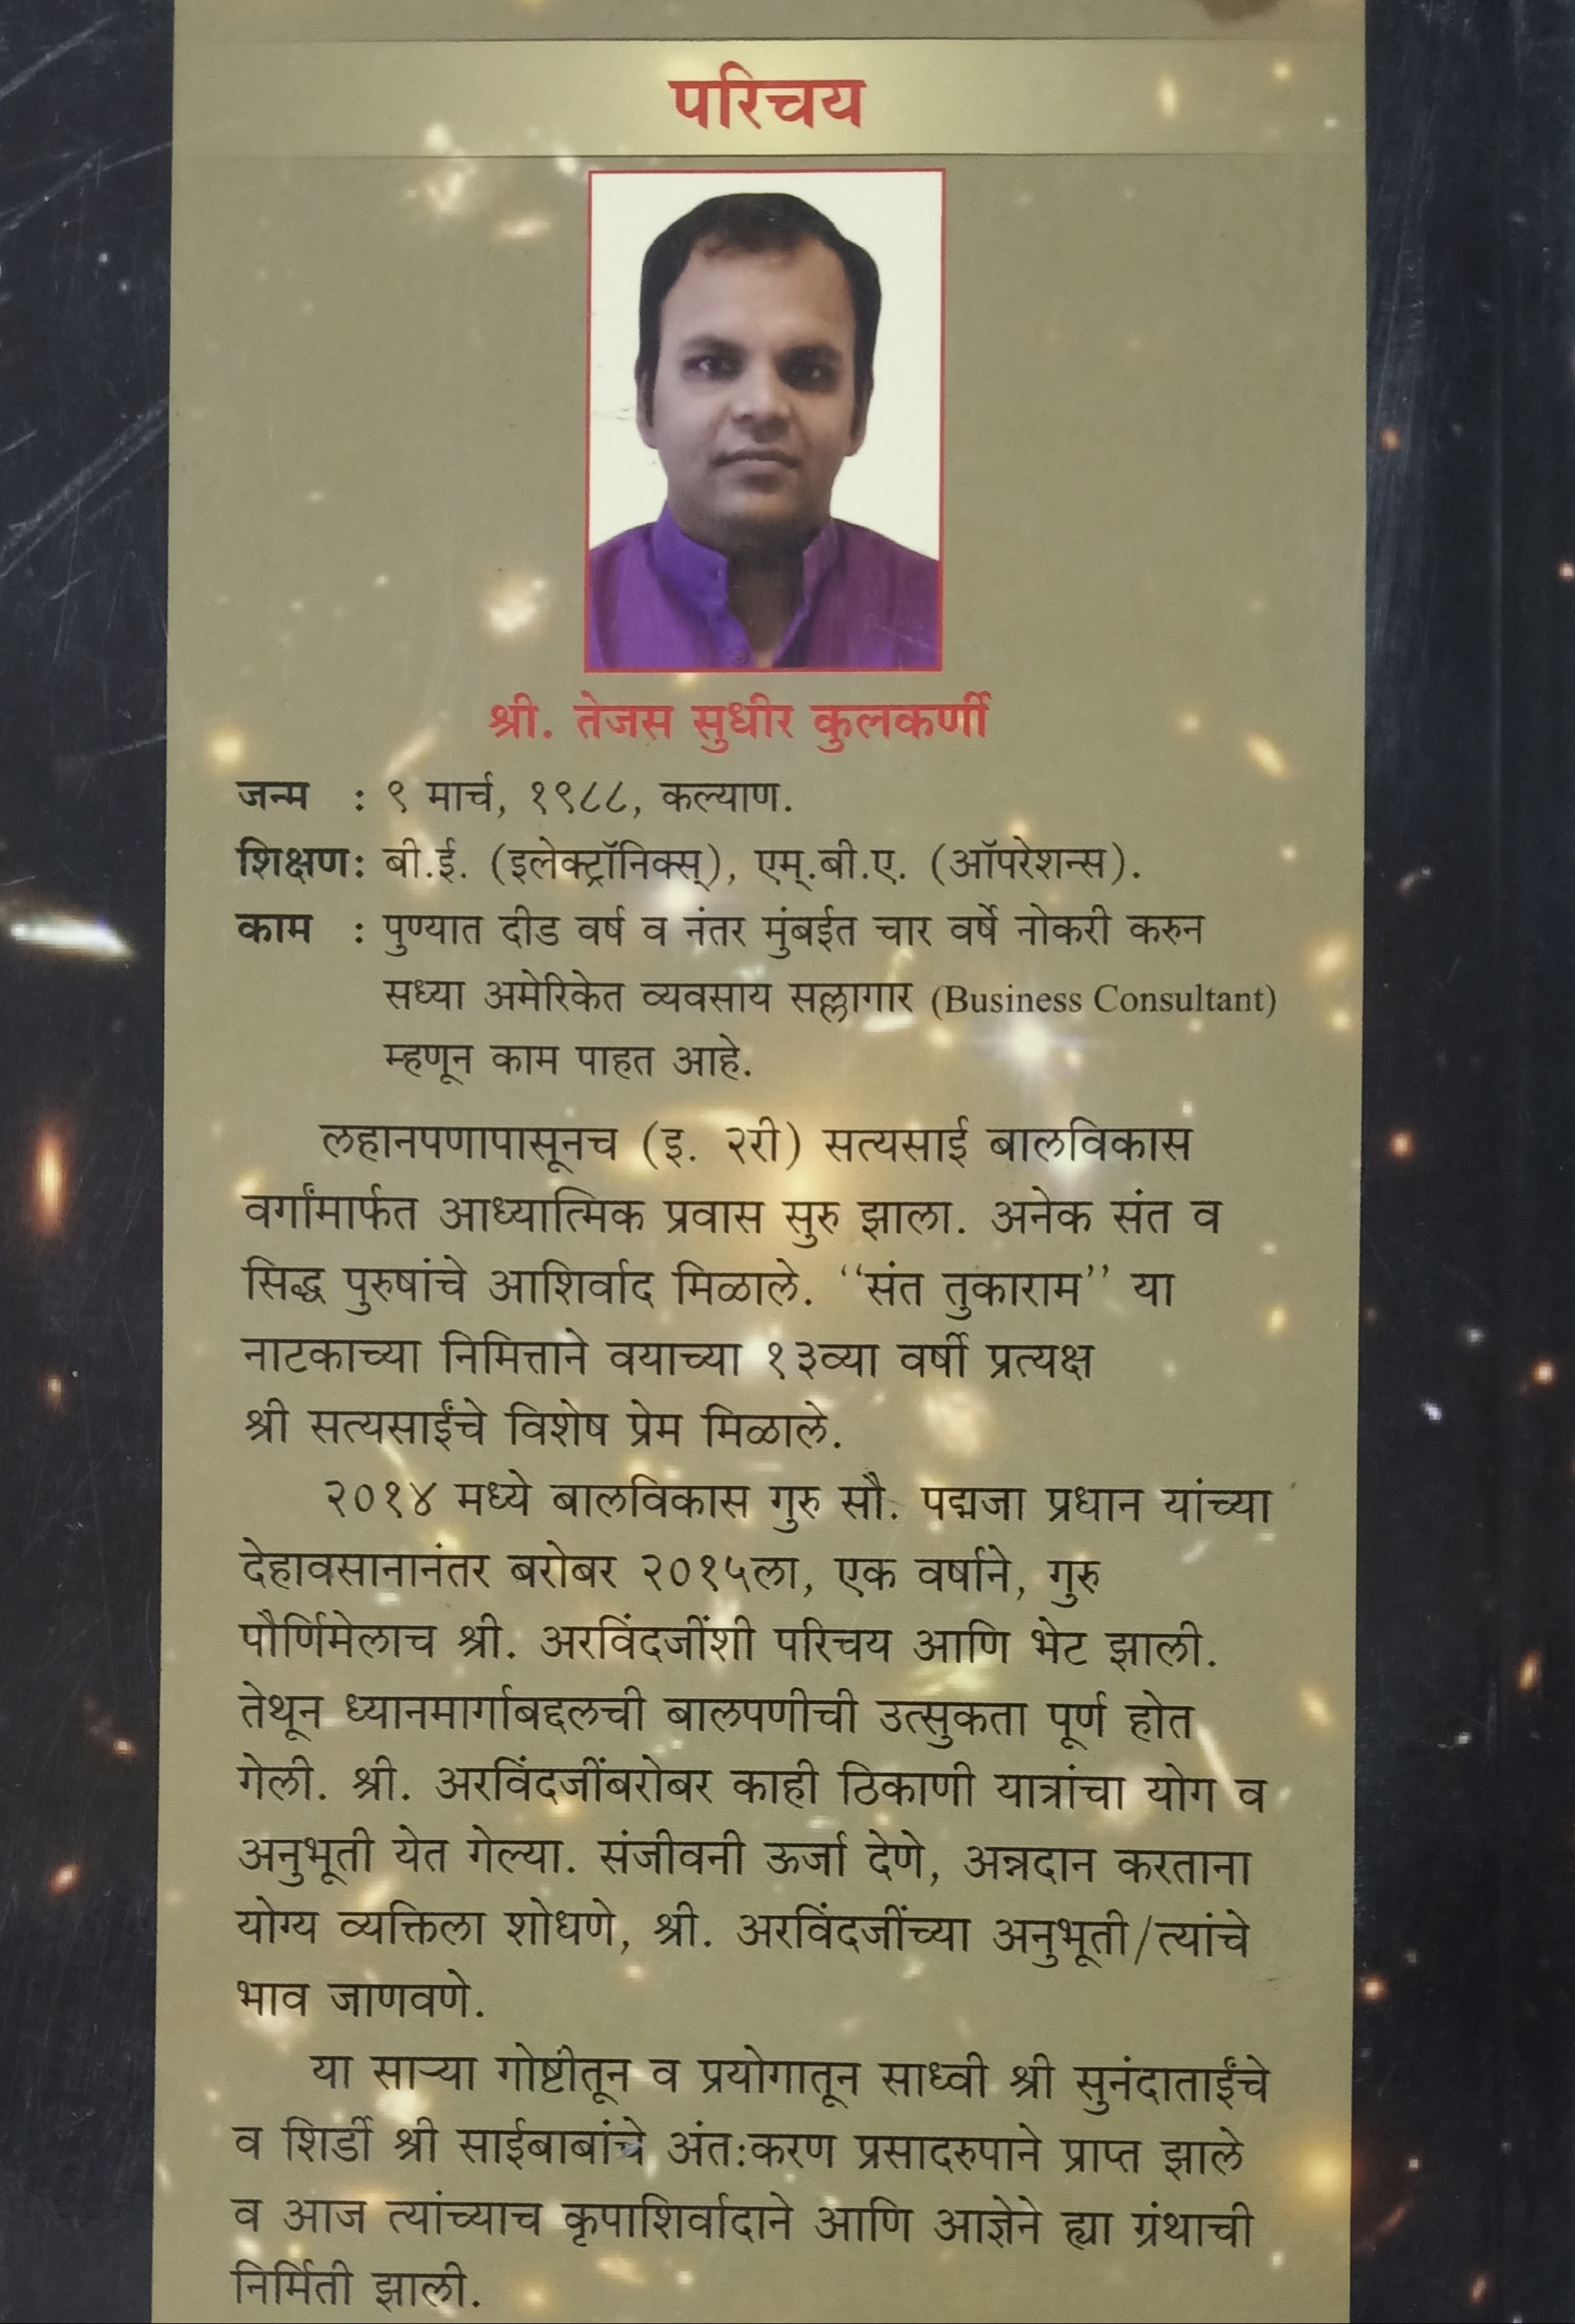 परिचय
श्री. तेजस सुधीर कुलकर्णी
जन्म : ९ मार्च, १९८८, कल्याण.
शिक्षण: बी.ई. (इलेक्ट्रॉनिक्स्), एम्.बी.ए. (ऑपरेशन्स).
काम : पुण्यात दीड वर्ष व नंतर मुंबईत चार वर्षे नोकरी करुन
सध्या अमेरिकेत व्यवसाय सल्लागार (Business Consultant)
म्हणून काम पाहत आहे.
लहानपणापासूनच (इ. २री) सत्यसाई बालविकास
वर्गांमार्फत आध्यात्मिक प्रवास सुरु झाला. अनेक संत व
सिद्ध पुरुषांचे आशिर्वाद मिळाले. ‘‘संत तुकाराम’’ या
नाटकाच्या निमित्ताने वयाच्या १३व्या वर्षी प्रत्यक्ष
श्री सत्यसाईंचे विशेष प्रेम मिळाले.
२०१४ मध्ये बालविकास गुरु सौ. पद्मजा प्रधान यांच्या
देहावसानानंतर बरोबर २०१५ला, एक वर्षाने, गुरु
पौर्णिमेलाच श्री. अरविंदजींशी परिचय आणि भेट झाली.
तेथून ध्यानमार्गाबद्दलची बालपणीची उत्सुकता पूर्ण होत
गेली. श्री. अरविंदजींबरोबर काही ठिकाणी यात्रांचा योग व
अनुभूती येत गेल्या. संजीवनी ऊर्जा देणे, अन्नदान करताना
योग्य व्यक्तिला शोधणे, श्री. अरविंदजींच्या अनुभूती/त्यांचे
भाव जाणवणे.
या साऱ्या गोष्टीतून व प्रयोगातून साध्वी श्री सुनंदाताईंचे
व शिर्डी श्री साईबाबांचे अंत:करण प्रसादरुपाने प्राप्त झाले
व आज त्यांच्याच कृपाशिर्वादाने आणि आज्ञेने ह्या ग्रंथाची
निर्मिती झाली.